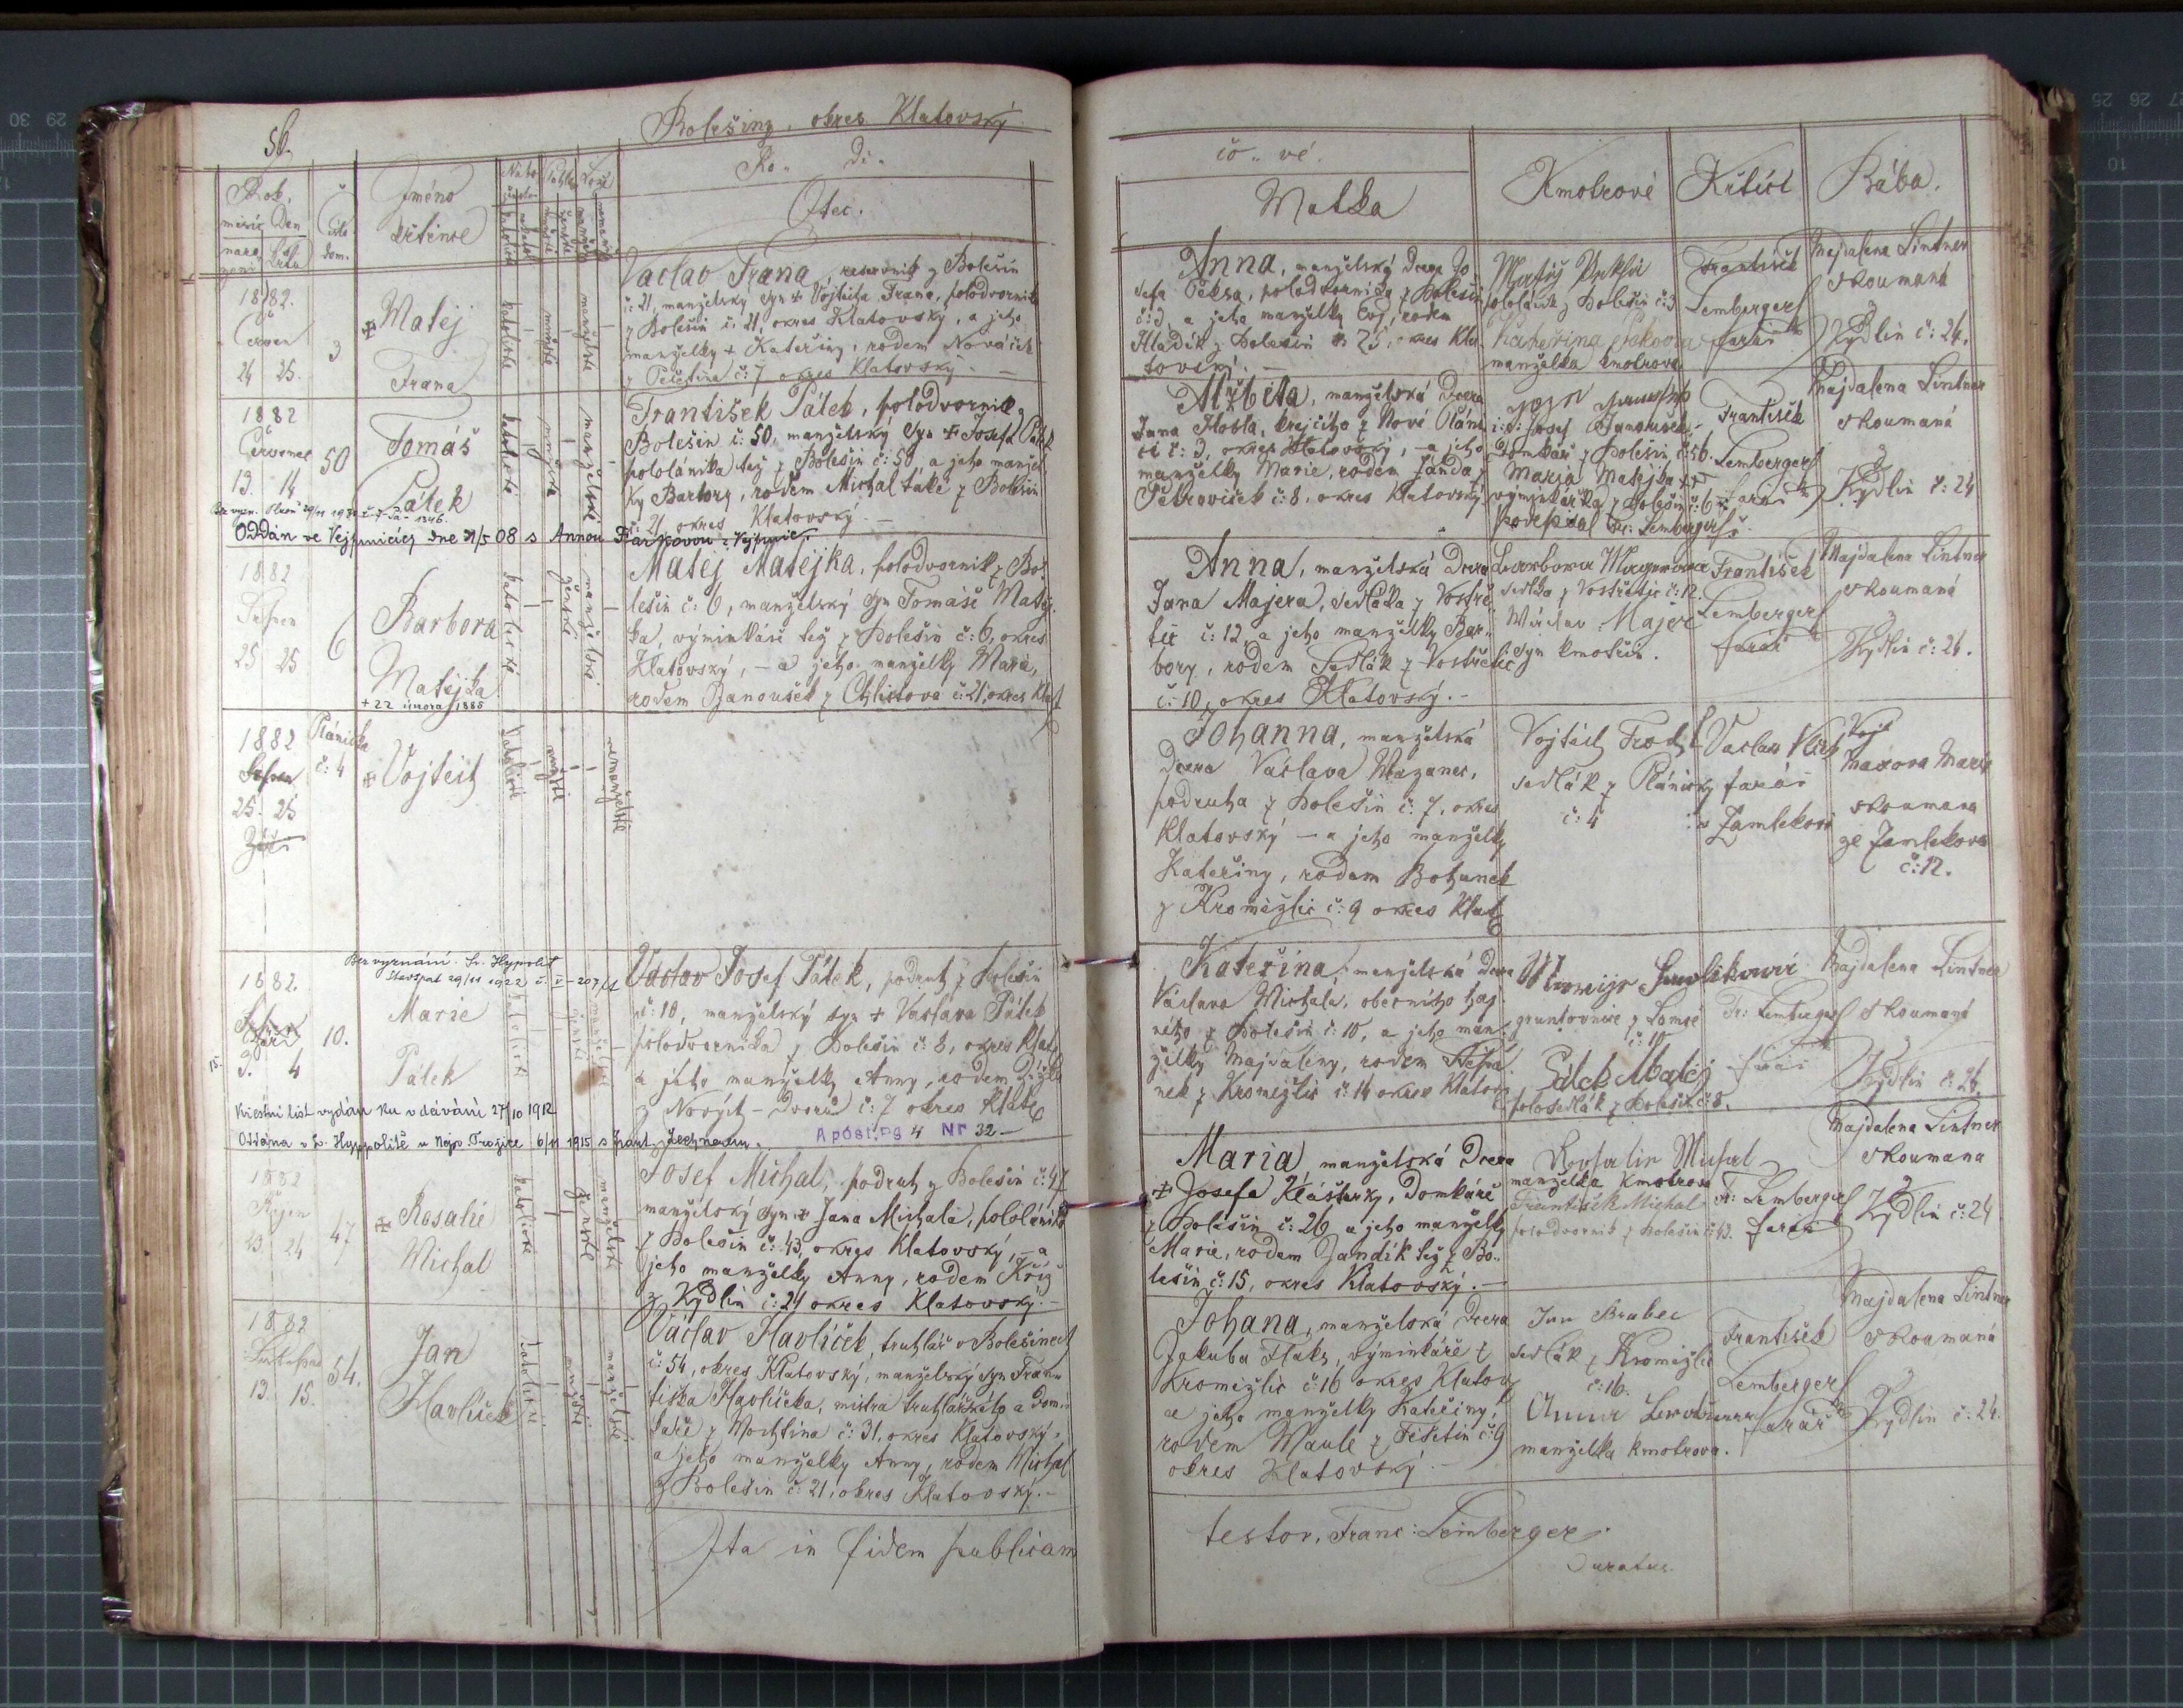 56.
Bolešiny, okres Klatovský
Rok,
měsíc Den
Číslo
dom.
Jméno
křtěnce
Ro- di-
Otec.
1882.
Červen
24 25.
3
Matěj
Frana
katolické
mužské
manželské
Václav Frana, reservník z Bolešin
č: 21, manželský syn + Vojtěcha Frana, polodvorníka
z Bolešin č: 21, okres Klatovský, a jeho
manželky + Kateřiny, rodem Nováček
č: 7 okres Klatovský. –
1882
Červenec
13. 14
50
Tomáš
Pátek
katolické
mužské
manželské
František Pátek, polodvorník z
Bolešin č: 50, manželský syn + Josefa Pátek
pololáníka též z Bolešin č: 50 a jeho manžel
ky Barbory, rodem Michal také z Bolešin
č: 21 okres Klatovský. –
Oddán ve Vejprnicích dne 31/5 08 s Annou
1882
Srpen
25 25
6
Barbora
Matějka
+ 22 února 1885
katolické
ženské
manželské
Matěj Matějka, polodvorník z Bo-
lešin č: 6, manželský syn Tomáše Matěj-
ka, výminkáře též z Bolešin č: 6, okres
Klatovský, – a jeho manželky Marie,
rodem Janoušek z Chlistova č: 21, okres Klat
1882
Srpen
25. 25
Plánička
č: 4
Vojtěch
katolické
mužské
nemanželské
Bez vyznání. Sv. Hypolit
1882.
Září
3. 4
10.
Marie
Pátek
katolické
ženské
manželské
Václav Josef Pátek, podruh z Bolešin
č: 10, manželský syn + Václava Pátek
polodvorníka z Bolešin č: 8, okres Klat.
a jeho manželky Anny, rodem
z Nových-Dvorů č: 7 okres Klat.
Křestní list vydán ku oddávání 27/10 1912
Oddána v Sv. Hyppolitě u Nejs. Trojice 6/11 1915 s Frant. Zechnerem.
Apost. Pg 4 Nr 32 –
1882
Říjen
23 24
47
Rosalie
Michal
katolické
ženské
manželské
Josef Michal, podruh z Bolešin č: 47
manželský syn + Jana Michala, pololáníka
z Bolešin č: 43, okres Klatovský, – a
jeho manželky Anny, rodem Kříž
z Kydlin č: 21 okres Klatovský. –
1882
Listopad
13. 15.
54.
Jan
Havlíček
katolické
mužské
manželské
Václav Havlíček, truhlář v Bolešinech
č: 54, okres Klatovský, manželský syn Fran-
tiška Havlíčka, mistra truhlářského a dom-
káře z Mochtína č: 31, okres Klatovský,
a jeho manželky Anny, rodem Michal
z Bolešin č: 21, okres Klatovský. –
Ita in fidem publicam
čo- vé.
Matka
Kmotrové
Křtící
Bába.
Anna, manželská dcera Jo-
sefa Peksa, polodvorníka z Bolešin
č: 3 a jeho manželky Evy, rodem
Hladík z Bolešin č: 25, okres Kla-
tovský. –
Matěj
pololáník z Bolešin č: 3
Kateřina
manželka kmotrova
František
Lemberger
farář
Majdalena Lintner
zkoumaná
z
Kydlin č: 24.
Alžběta, manželská dcera
Jana Hosla, krejčího z Nové Pláni-
č: 3, okres Klatovský, – a jeho
manželky Marie, rodem Janda z
Petroviček č: 8, okres Klatovský.
Josef Janoušek
domkář z Bolešin č: 56.
Marie Matějka +++
výminkářka z Bolešin č: 6
podepsal Fr: Lemberger
František
Lemberger
farář
Majdalena Lintner
zkoumaná
z
Kydlin č: 24
Anna, manželská dcera
Jana Majera, sedláka z Vostře-
tic č: 12 a jeho manželky Bar-
bory, rodem Sedlák z Vostřetic
č: 10, okres Klatovský. –
Barbora Mayerova
sedlka z Vostřetic č: 12.
Václav Majer
syn kmotřin.
František
Lemberger
farář
Majdalena Lintner
zkoumaná
z
Kydlin č: 24.
Johanna, manželská
dcera Václava Mazanec,
podruha z Bolešin č: 7, okres
Klatovský – a jeho manželky
Kateřiny, rodem Bohunek
z Kroměždic č: 9 okres Klat.
Vojtěch
sedlák z Pláničky
č: 4
Václav Vlček
farář
v Zamlekově
Marie
zkoumana
ze Zamlekova
č: 12.
Kateřina, manželská dcera
Václava Michala, obecního haj-
ného z Bolešin č: 10, a jeho man-
želky Majdaleny, rodem Štěpá-
nek z Kroměždic č: 14 okres Klatov.
gruntovnice z Lomce
č: 10
Pátek Matěj
polosedlák z Bolešin č: 8.
Fr: Lemberger
farář
Majdalena Lintner
zkoumaná
z
Kydlin č: 24.
Maria, manželská dcera
+ Josefa Klášterky, domkáře
z Bolešin č: 26 a jeho manželky
Marie, rodem Jandík též z Bo-
lešin č: 15, okres Klatovský. –
Rosalie Michal
manželka kmotrova
František Michal
polodvorník z Bolešin č: 43.
Fr: Lemberger
farář
Majdalena Lintner
zkoumana
z
Kydlin č: 24
Johana, manželská dcera
Jakuba Flaks, výminkáře z
Kroměždic č: 16 okres Klatov.
a jeho manželky Kateřiny,
rodem Maule z Těšetin č: 9
okres Klatovský –
Jan Brabec
sedlák z Kroměždic
č: 16.
Anna
manželka kmotrova.
František
Lemberger
farář
Majdalena Lintner
zkoumaná
z
Kydlin č: 24.
testor, Franc: Lemberger
Curatus.